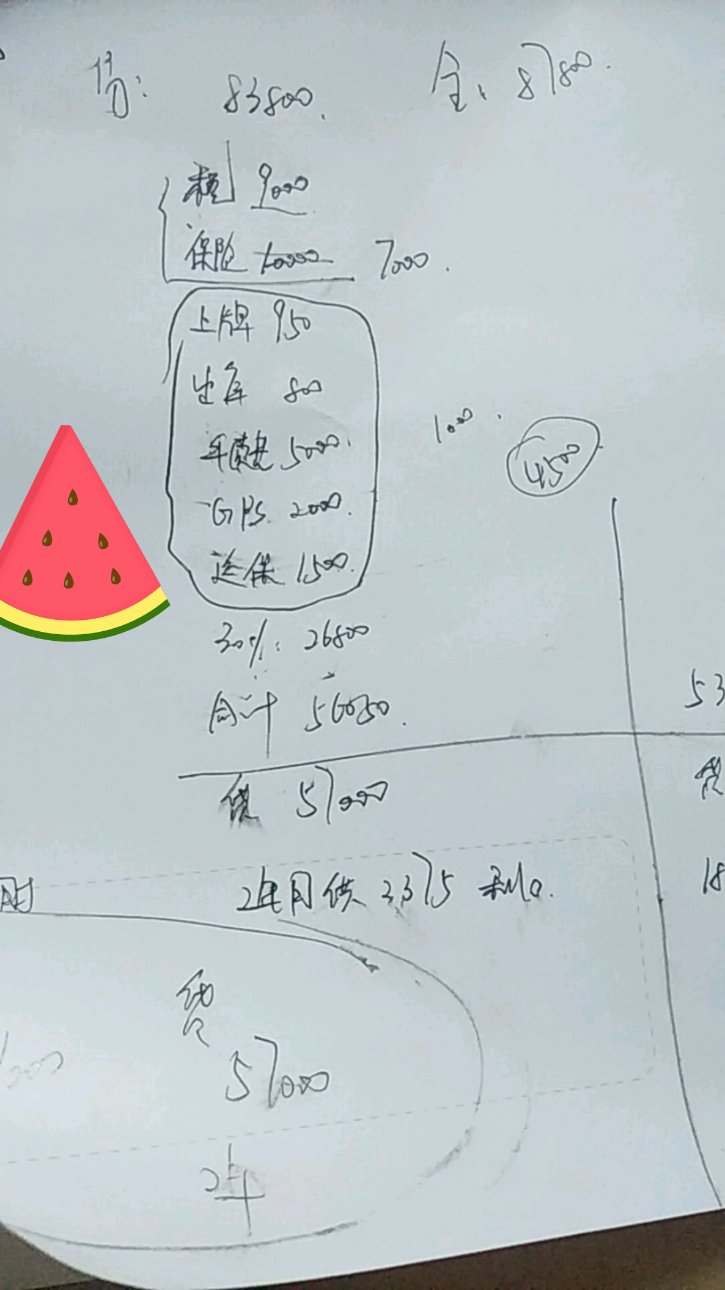 贷: 83800. 全: 87800.
税 9000
保险 10000 7000.
上牌 950
出库 800
手续费 5000. 1000.
4500
GPS 2000.
续保 1500.
30%: 26800
合计 56050.
53
贷 57000
贷
2年月供 2375 利息0.
18
贷
57000
2年